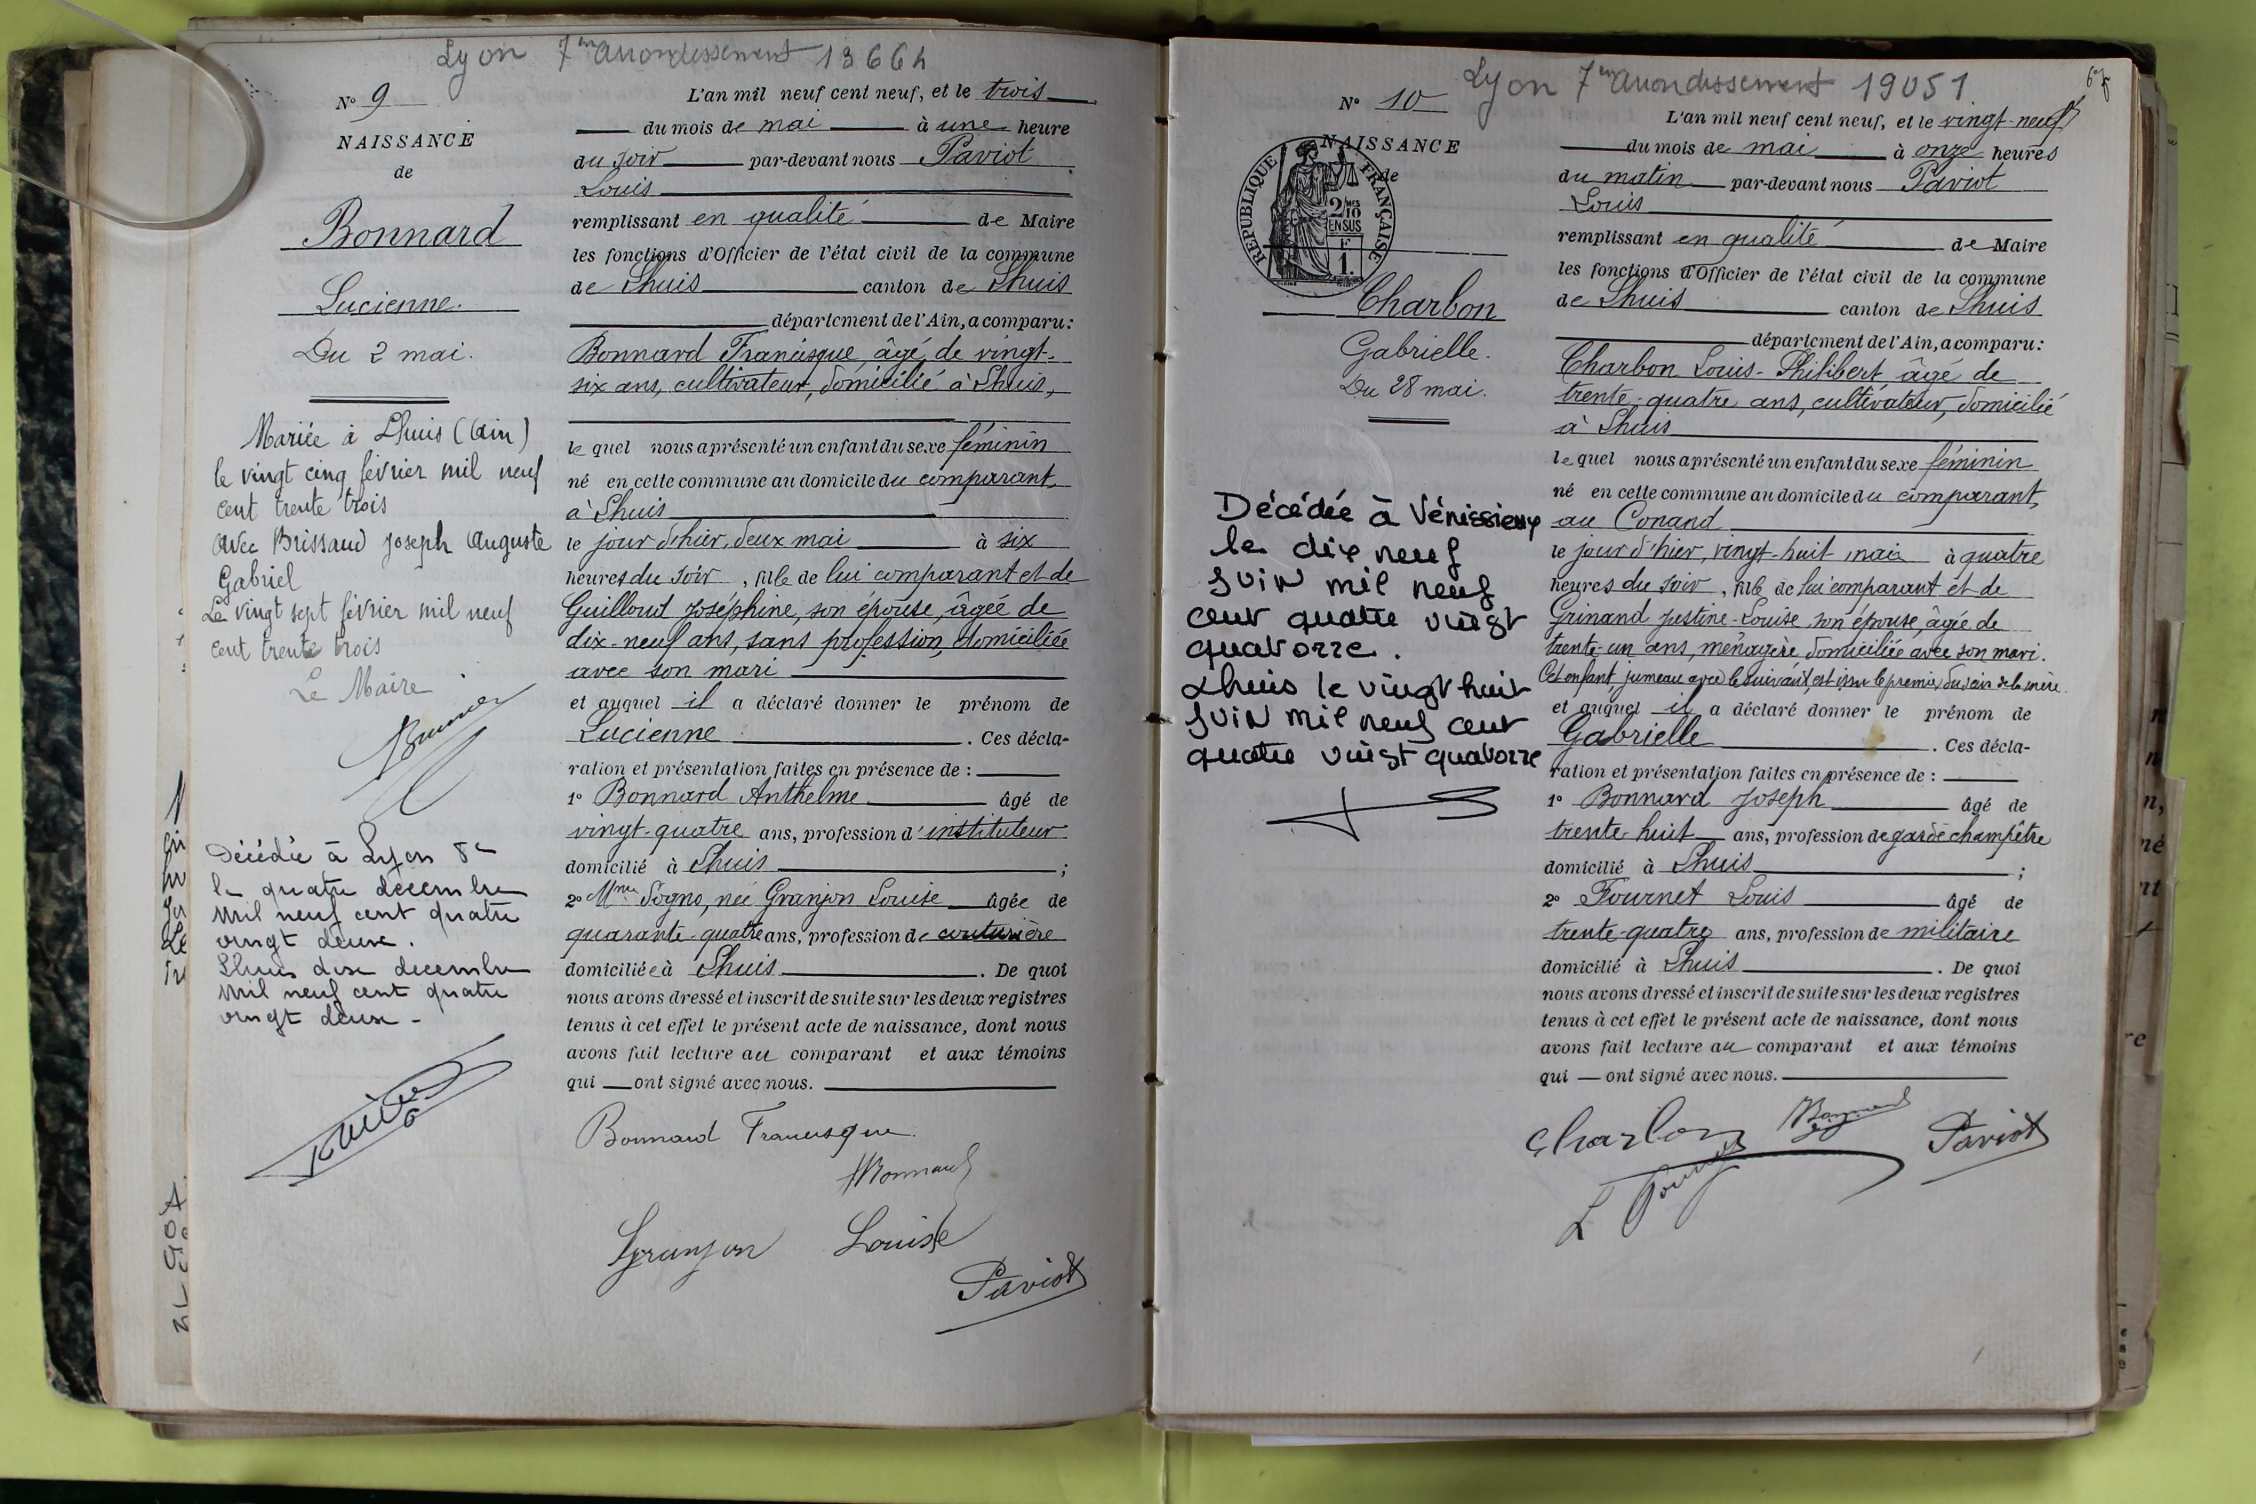 Lyon 7em arrondissement 13664
N° 9
NAISSANCE
de
Bonnard
Lucienne.
Du 2 mai.
Mariée à Lhuis (Ain)
le vingt cinq février mil neuf
cent trente trois
avec Brissaud Joseph Auguste
Gabriel
Le vingt sept février mil neuf
cent trente trois
Le Maire
Décédée à Lyon 8e
le quatre decembre
mil neuf cent quatre
vingt deux.
Lhuis dix decembre
mil neuf cent quatre
vingt deux -
L'an mil neuf cent neuf, et le trois
du mois de mai à une heure
du soir par-devant nous Paviot
Louis
remplissant en qualité de Maire
les fonctions d'Officier de l'état civil de la commune
de Lhuis canton de Lhuis
département de l'Ain, a comparu:
Bonnard Francisque, âgé de vingt-
six ans, cultivateur, domicilié à Lhuis,
le quel nous a présenté un enfant du sexe féminin
né en cette commune au domicile du comparant,
à Lhuis
le jour d'hier, deux mai à six
heures du soir, fille de lui comparant et de
Guilloud Joséphine, son épouse, âgée de
dix-neuf ans, sans profession, domiciliée
avec son mari
et auquel il a déclaré donner le prénom de
Lucienne. Ces décla-
ration et présentation faites en présence de :
1° Bonnard Anthelme âgé de
vingt-quatre ans, profession d'instituteur
domicilié à Lhuis ;
2° Mme Sogno, née Granjon Louise âgée de
quarante-quatre ans, profession de couturière
domiciliée à Lhuis. De quoi
nous avons dressé et inscrit de suite sur les deux registres
tenus à cet effet le présent acte de naissance, dont nous
avons fait lecture au comparant et aux témoins
qui ont signé avec nous.
Bonnard Francisque
ABonnard
Granjon Louise
Paviot
Lyon 7em arrondissement 19051
N° 10
NAISSANCE
de
REPUBLIQUE FRANÇAISE
2/10
EN SUS
1.
Charbon
Gabrielle.
Du 28 mai.
Décédée à Vénissieux
le dix neuf
JUIN mil neuf
cent quatre vingt
quatorze.
Lhuis le vingt huit
JUIN mil neuf cent
quatre vingt quatorze
L'an mil neuf cent neuf, et le vingt-neuf
du mois de mai à onze heures
du matin par-devant nous Paviot
Louis
remplissant en qualité de Maire
les fonctions d'Officier de l'état civil de la commune
de Lhuis canton de Lhuis
département de l'Ain, a comparu:
Charbon Louis-Philibert âgé de
trente-quatre ans, cultivateur, domicilié
à Lhuis
le quel nous a présenté un enfant du sexe féminin
né en cette commune au domicile du comparant,
au Conand
le jour d'hier, vingt-huit mai à quatre
heures du soir, fille de lui comparant et de
Grinand Justine-Louise son épouse, âgée de
trente-un ans, ménagère domiciliée avec son mari.
Cet enfant, jumeau avec le suivant, est issu le premier du sein de la mère.
et auquel il a déclaré donner le prénom de
Gabrielle. Ces décla-
ration et présentation faites en présence de :
1° Bonnard Joseph âgé de
trente-huit ans, profession de garde champêtre
domicilié à Lhuis ;
2° Fournet Louis âgé de
trente-quatre ans, profession de militaire
domicilié à Lhuis. De quoi
nous avons dressé et inscrit de suite sur les deux registres
tenus à cet effet le présent acte de naissance, dont nous
avons fait lecture au comparant et aux témoins
qui — ont signé avec nous.
Charbon
Paviot